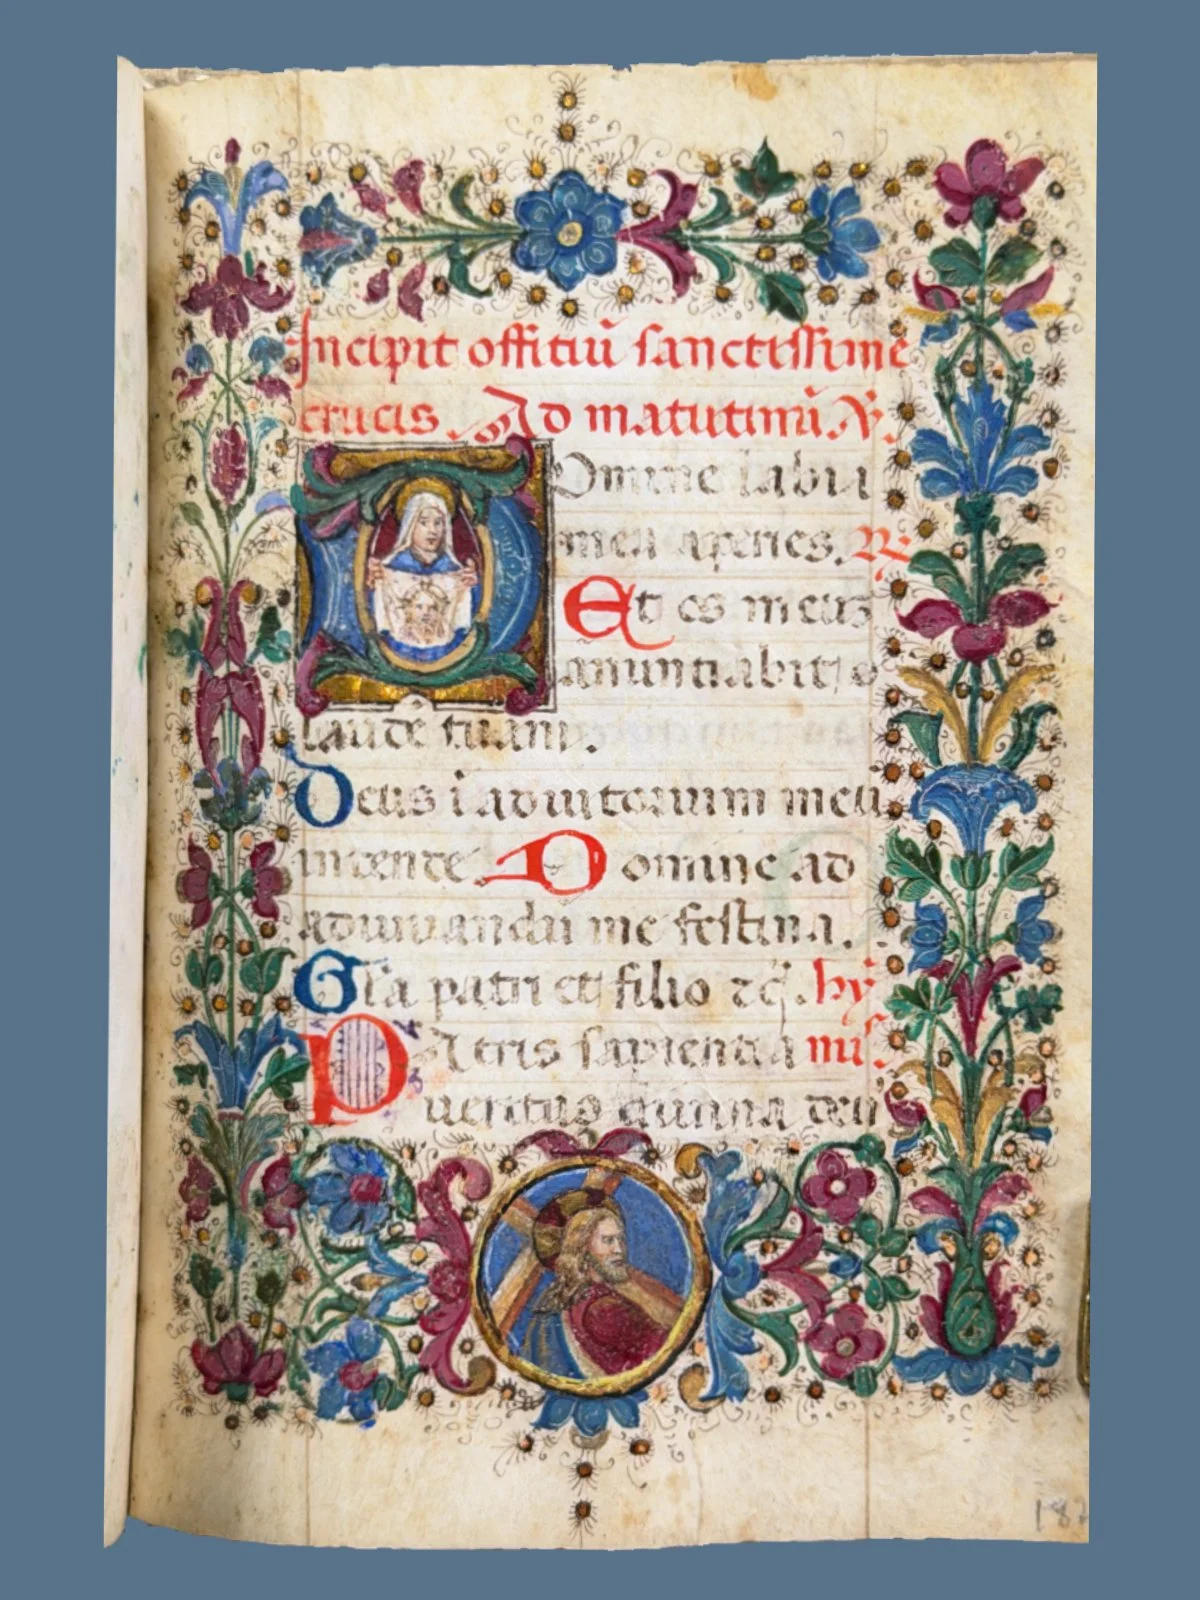 Incipit offitiũ sanctissime
crucis. Ad matutinũ ℣.
Domine labia
mea aperies. ℟
Et os meuʒ
añuntiabit
laudẽ tuam.
Deus ĩ adiutorium meũ
intende Domine ad
adiuvandũ me festina.
Gľa patri et filio hy
Patris sapientia nus.
veritas divina deus